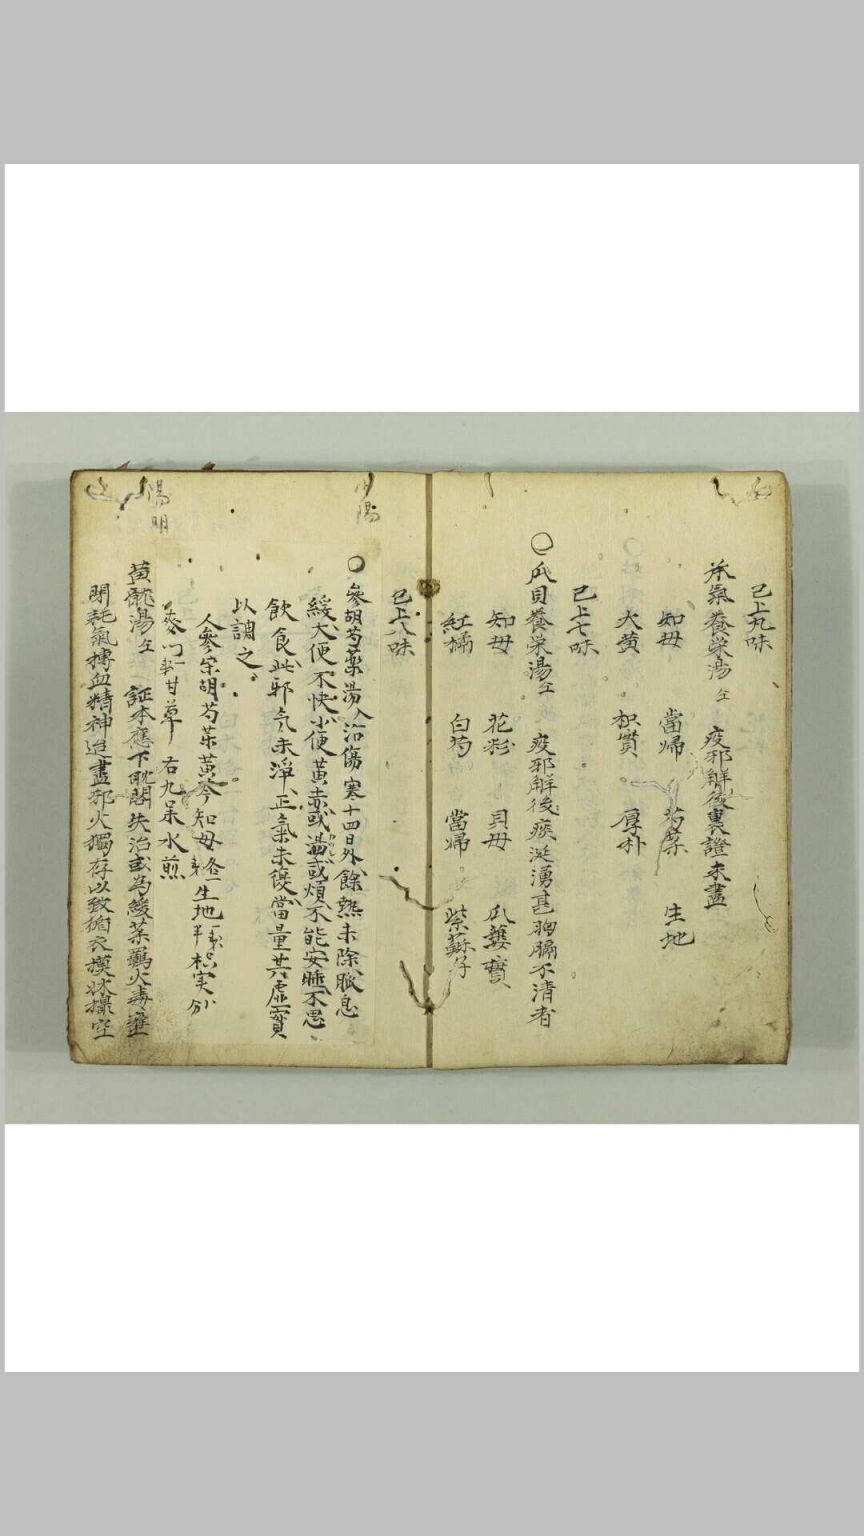 已上九味
承氣養栄湯 疫邪解後裏證未盡
知母 當帰 芍薬 生地
大黄 枳實 厚朴
已上七味
〇瓜貝養栄湯 疫邪解後痰涎湧甚胸膈不清者
知母 花粉 貝母 瓜蔞實
紅橘 白芍 當帰 紫蘇子
已上八味
少陽
〇參胡芍薬湯 治傷寒十四日外餘熱未除脈息
緩大便不快小便黄赤或渇或煩不能安睡不思
飲食此邪気未淨正氣未復當量其虚實
以調之
人參宋胡芍薬黄芩知母各一 生地 枳実
麥門 甘草 右九味水煎
陽明
黄龍湯 証本應下耽閣失治或為緩薬羈火毒壅
閉耗氣搏血精神 盡邪火獨存以致循衣摸床撮空